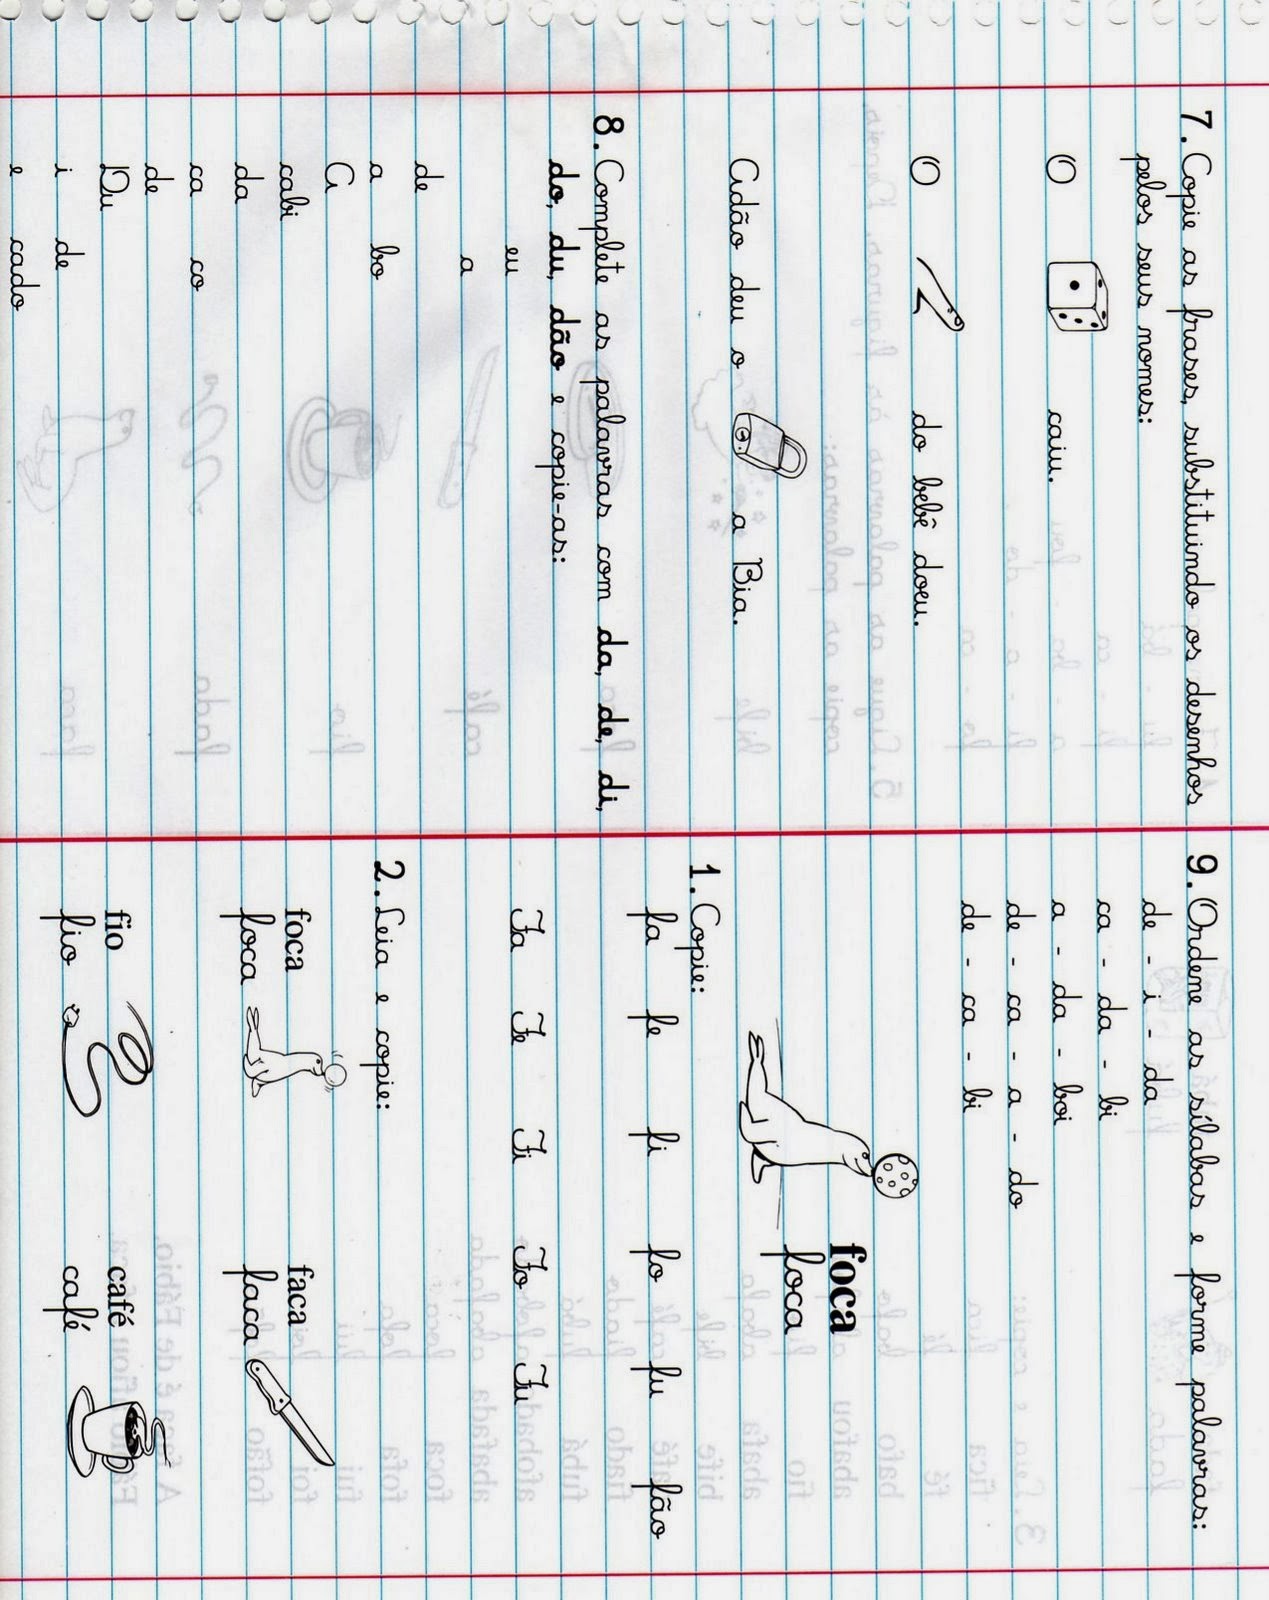 7. Copie as frases, substituindo os desenhos
pelos seus nomes:
O caiu.
O do bebê doeu.
Adão deu o a Bia.
8. Complete as palavras com da, de, di,
do, du, dão e copie-as:
eu
a
de
a bo
A
cabi
da
ca co
de
Du
i de
e cado
9. Ordene as sílabas e forme palavras:
de - i - da
ca - da - bi
a - da - boi
de - ca - a - do
de - ca - bi
foca
foca
1. Copie:
fa fe fi fo fu fão
Fa Fe Fi Fo Fu
2. Leia e copie:
foca faca
foca faca
fio café
fio café